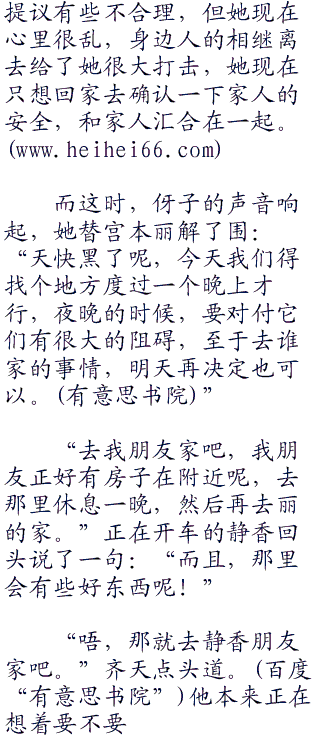 提议有些不合理，但她现在
心里很乱，身边人的相继离
去给了她很大打击，她现在
只想回家去确认一下家人的
安全，和家人汇合在一起。
(www.heihei66.com)
而这时，伢子的声音响
起，她替宫本丽解了围：
“天快黑了呢，今天我们得
找个地方度过一个晚上才
行，夜晚的时候，要对付它
们有很大的阻碍，至于去谁
家的事情，明天再决定也可
以。(有意思书院)”
“去我朋友家吧，我朋
友正好有房子在附近呢，去
那里休息一晚，然后再去丽
的家。”正在开车的静香回
头说了一句：“而且，那里
会有些好东西呢！”
“唔，那就去静香朋友
家吧。”齐天点头道。(百度
“有意思书院”)他本来正在
想着要不要